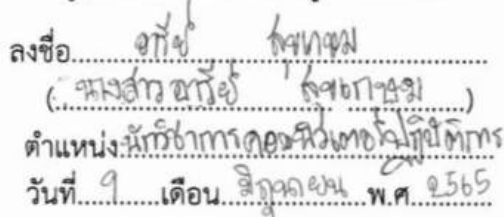 ลงชื่อ อารีย์ สุขเกษม
(นางสาวอารีย์ สุขเกษม)
ตำแหน่ง นักวิชาการคอมพิวเตอร์ปฏิบัติการ
วันที่ 9 เดือน มิถุนายน พ.ศ. 2565